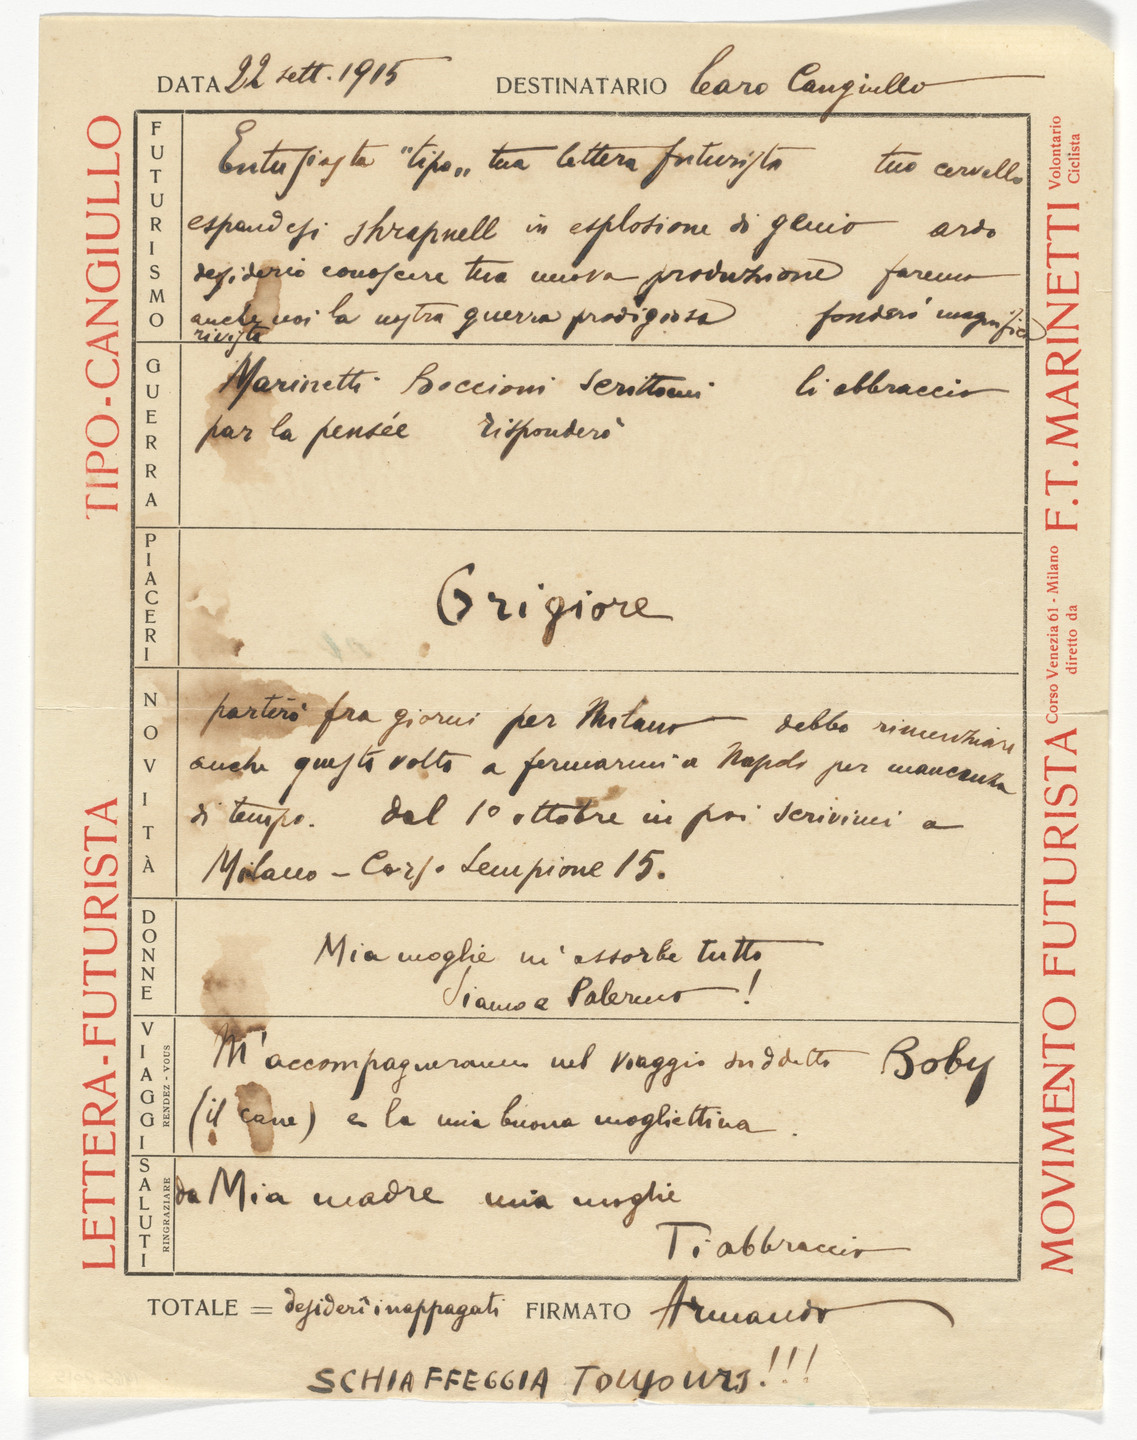 DATA 22 sett. 1915 DESTINATARIO Caro Cangiullo
TIPO-CANGIULLO
LETTERA-FUTURISTA
FUTURISMO
Entusiasta "tipo„ tua lettera futurista tuo cervello
espandesi shrapnell in esplosione di genio ardo
desiderio conoscere tua nuova produzione faremo
anche noi la nostra guerra prodigiosa fonderò magnifica
rivista
GUERRA
Marinetti Boccioni scrittomi li abbraccio
par la pensée risponderò
PIACERI
Grigiore
NOVITÀ
partirò fra giorni per Milano debbo rinunziare
anche questa volta a fermarmi a Napoli per mancanza
di tempo. Dal 1º ottobre in poi scrivimi a
Milano - Corso Sempione 15.
DONNE
Mia moglie m'assorbe tutto
Siamo a Palermo !
VIAGGI
RENDEZ-VOUS
M'accompagneranno nel viaggio suddetto Boby
(il cane) e la mia buona mogliettina.
SALUTI
RINGRAZIARE
da Mia madre mia moglie
Ti abbraccio
TOTALE = desiderî inappagati FIRMATO Armando
SCHIAFFEGGIA TOUJOURS!!!
MOVIMENTO FUTURISTA
diretto da
Corso Venezia 61 - Milano
F. T. MARINETTI
Volontario
Ciclista